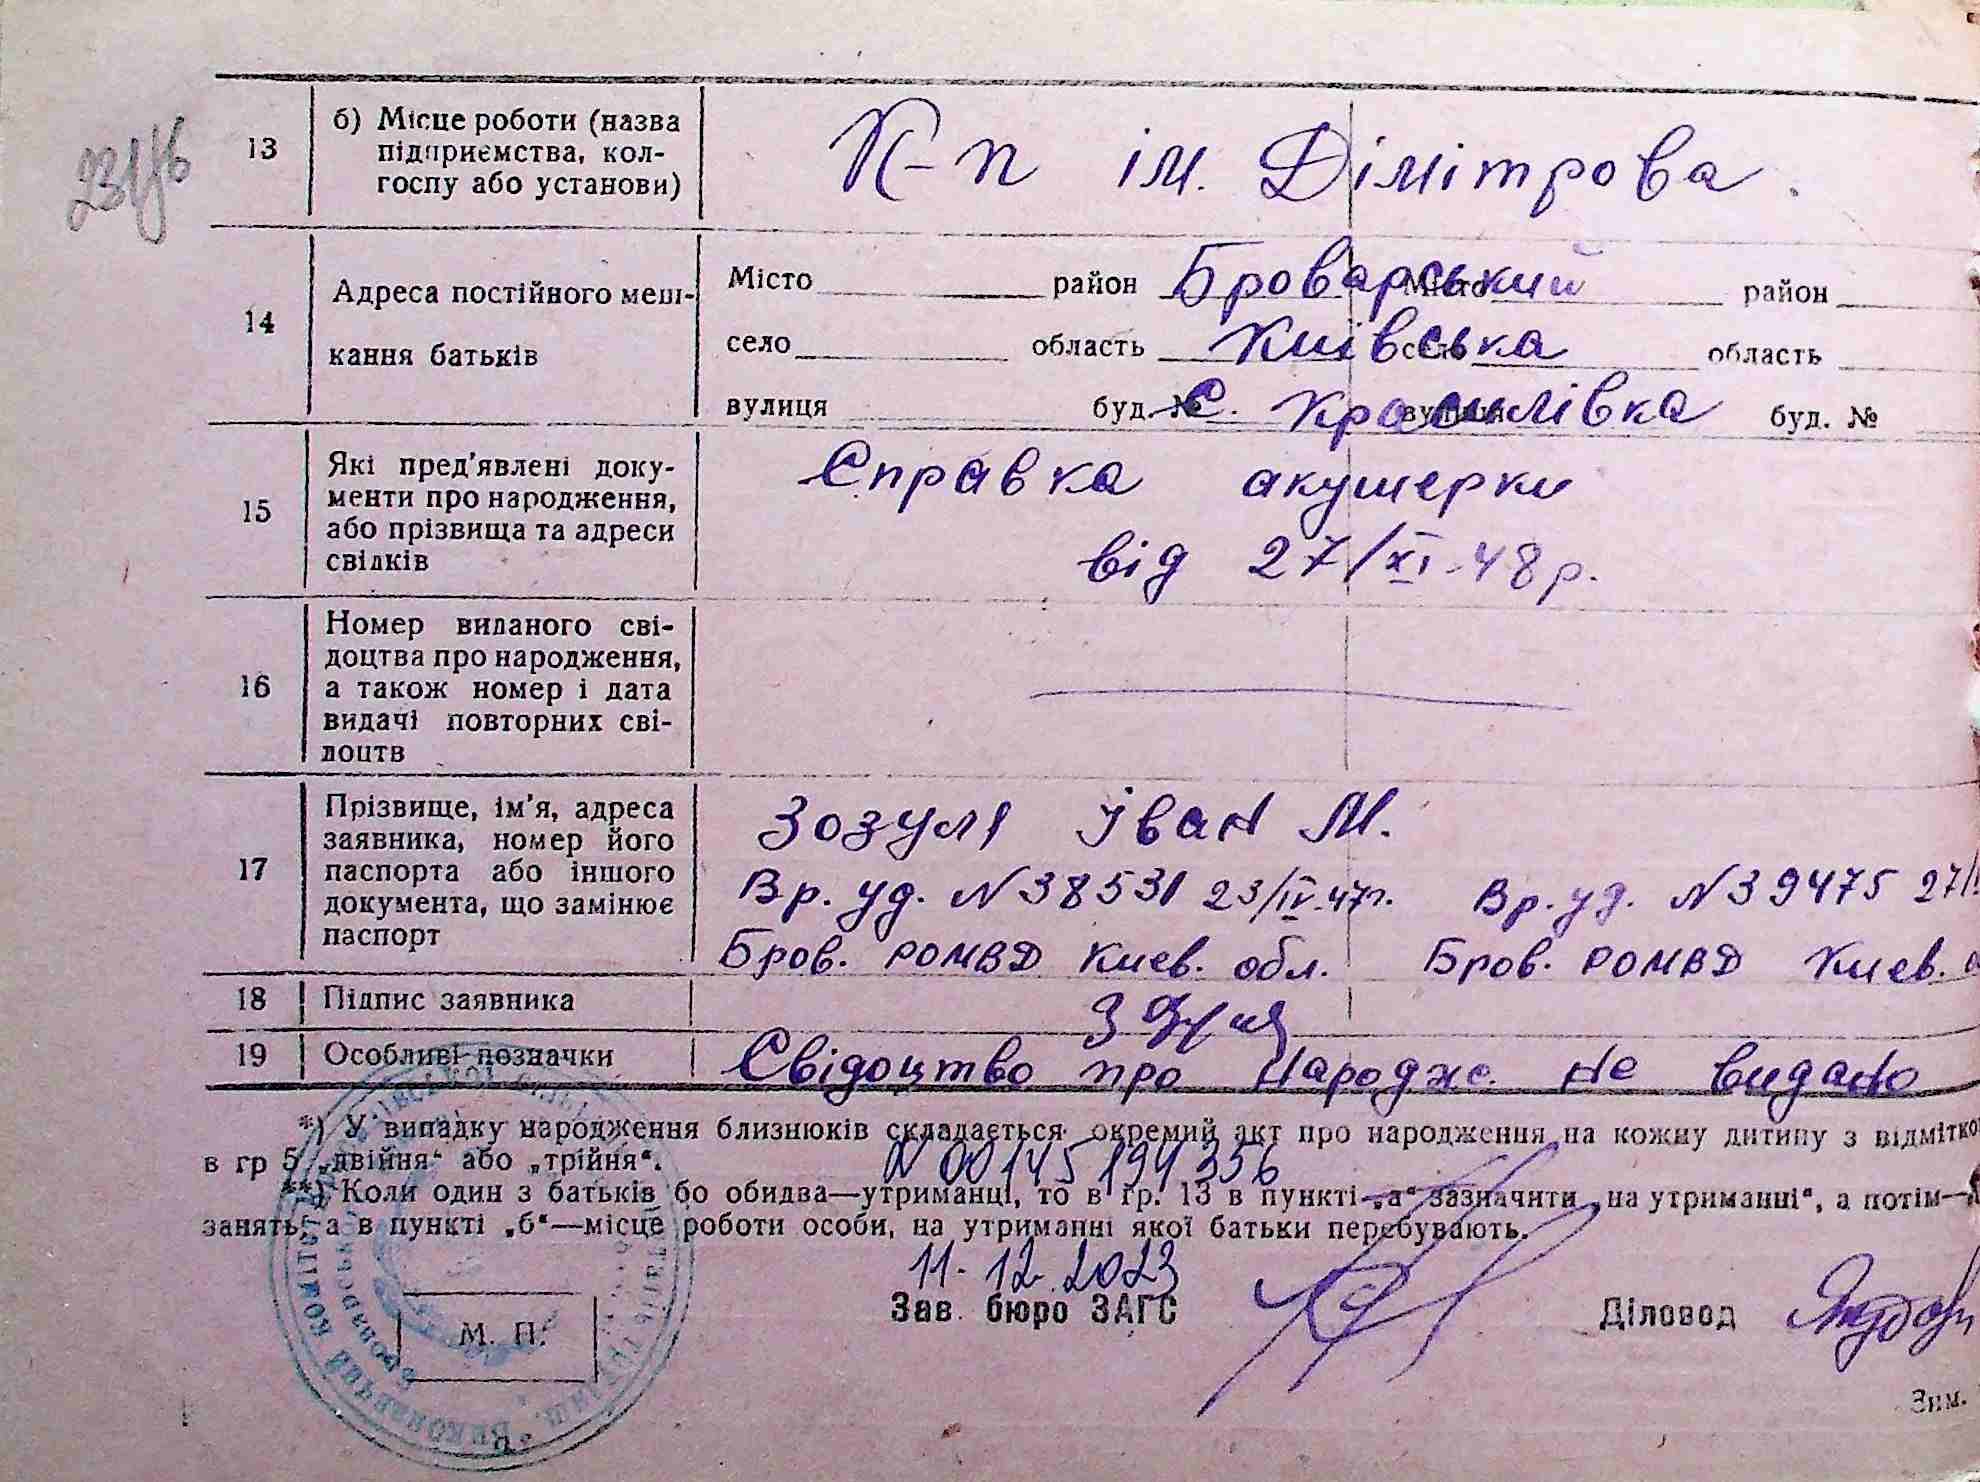 13 б) Місце роботи (назва підприємства, колгоспу або установи) К-п ім. Дімітрова.
14 Адреса постійного мешкання батьків
Місто район Броварський Місто район
село область Київська село область
вулиця буд. № с. Красилівка вулиця буд. №
15 Які пред'явлені документи про народження, або прізвища та адреси свідків
Справка акушерки
від 27/XI-48р.
16 Номер виданого свідоцтва про народження, а також номер і дата видачі повторних свідоцтв
17 Прізвище, ім'я, адреса заявника, номер його паспорта або іншого документа, що замінює паспорт
Зозуля Іван М.
Вр. уд. N 38531 23/IV-47г. Вр. уд. N 39475 27/
Бров. РОМВД Киев. обл. Бров. РОМВД Киев.
18 Підпис заявника
19 Особливі позначки Свідоцтво про народж. не видано
*) У випадку народження близнюків складається окремий акт про народження на кожну дитину з відміткою
в гр 5 „двійня“ або „трійня“.
N 00145194356
**) Коли один з батьків бо обидва—утриманці, то в гр. 13 в пункті „а“ зазначити „на утриманні“, а потім—
занять, а в пункті „б“—місце роботи особи, на утриманні якої батьки перебувають.
11.12.2023
Зав. бюро ЗАГС Діловод
М. П.
Зим.